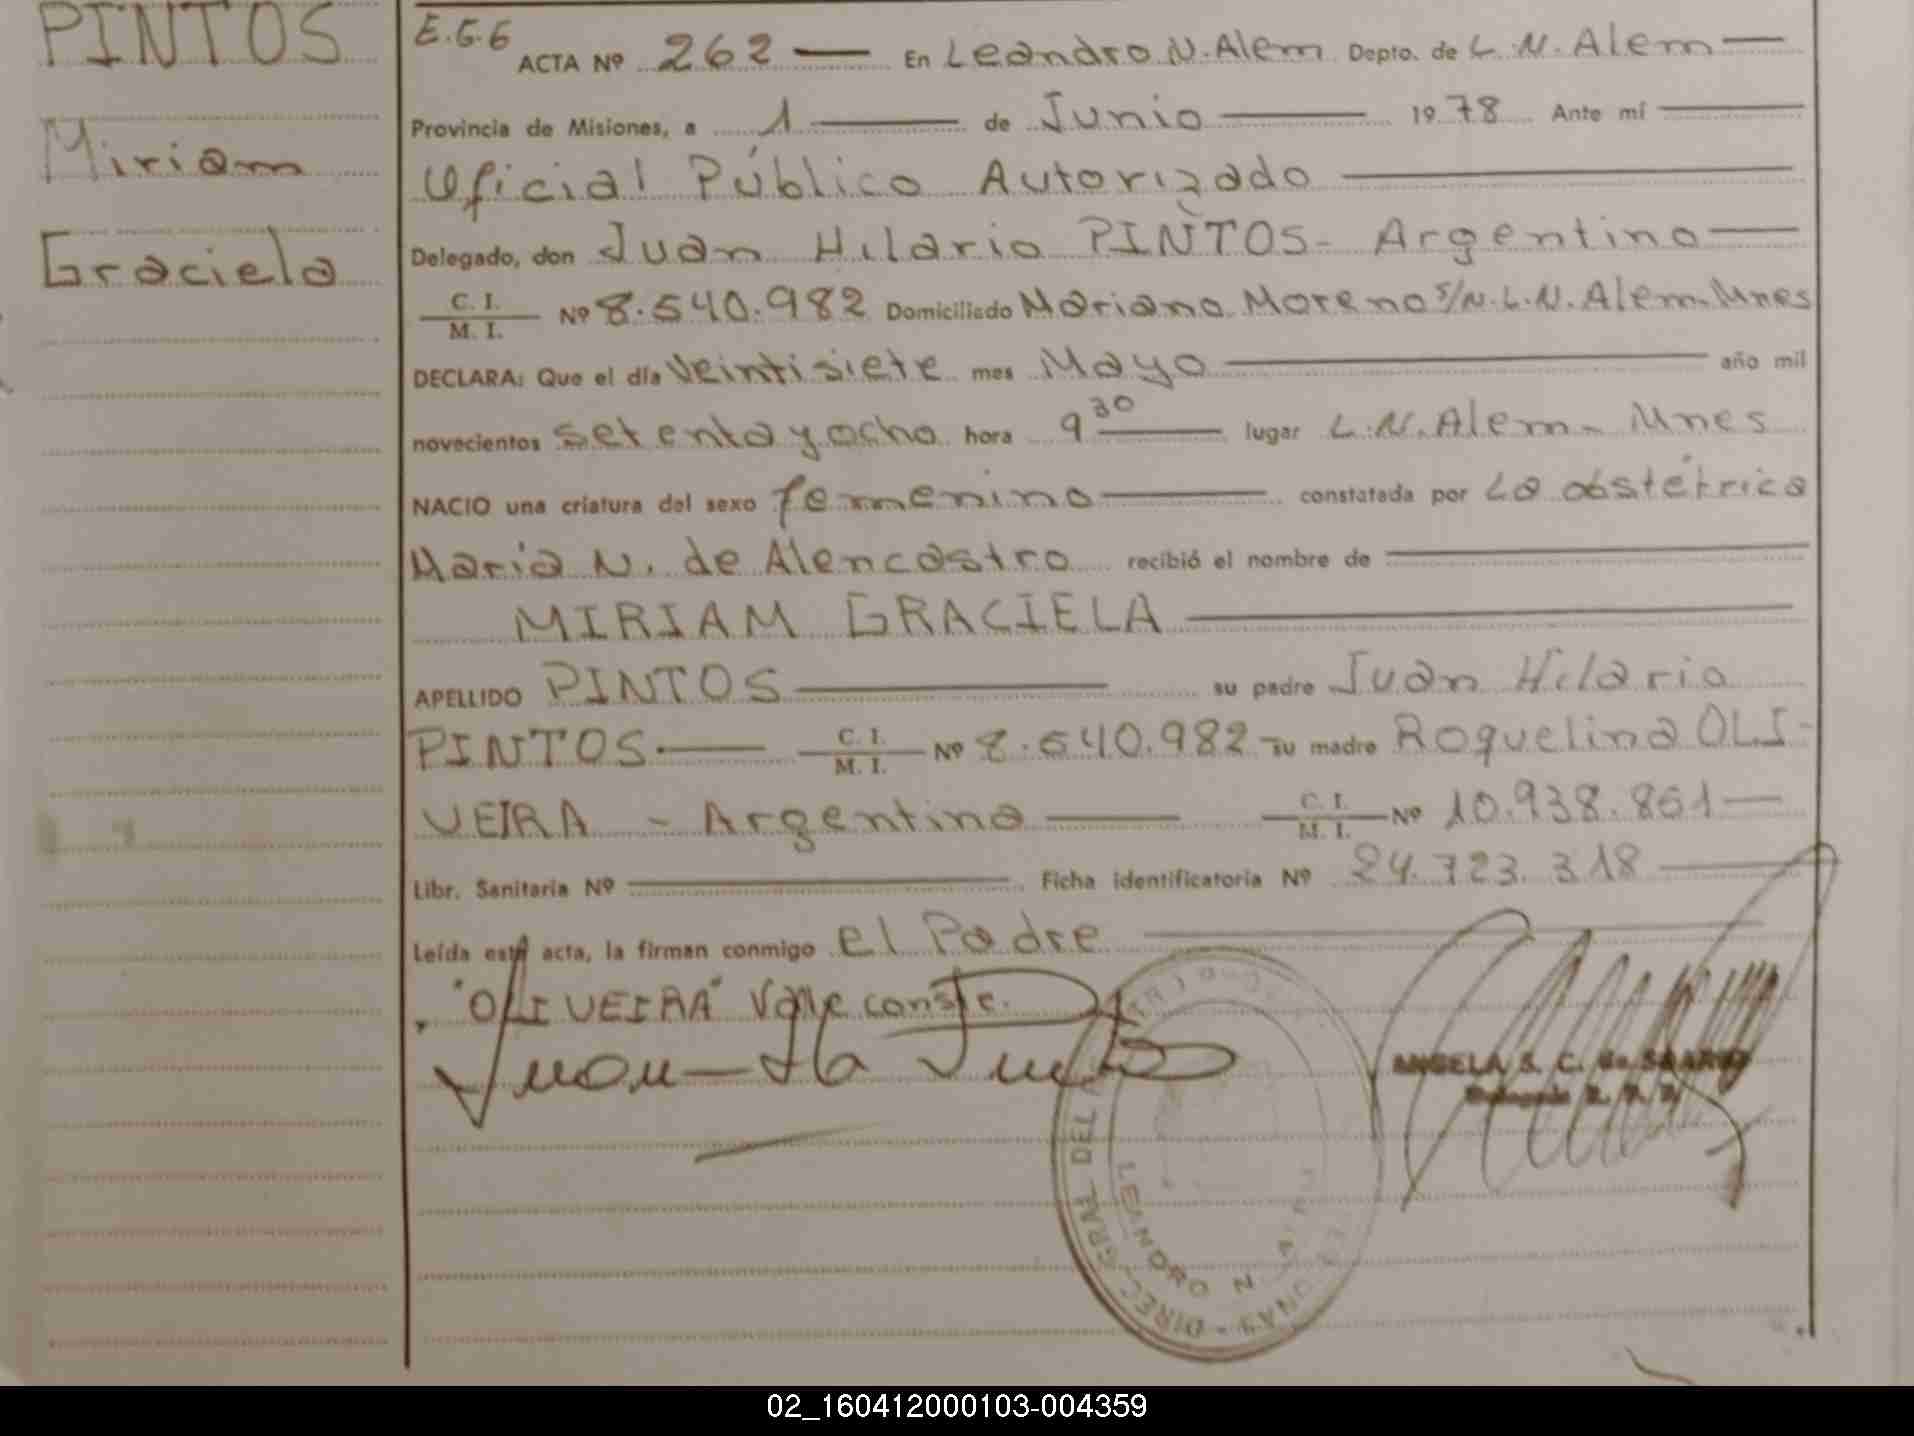 PINTOS
Miriam
Graciela
E.G.G
ACTA Nº 262 — En Leandro N. Alem Depto. de L. N. Alem —
Provincia de Misiones, a 1 — de Junio — 1978 Ante mí —
Oficial Público Autorizado —
Delegado, don Juan Hilario PINTOS - Argentino —
C. I.
M. I. Nº 8.540.982 Domiciliado Mariano Moreno S/N. L. N. Alem. Mnes
DECLARA: Que el día Veintisiete mes Mayo — año mil
novecientos setenta y ocho hora 9 30 — lugar L. N. Alem - Mnes
NACIO una criatura del sexo femenino — constatada por La obstétrica
Maria N. de Alencastro recibió el nombre de —
MIRIAM GRACIELA —
APELLIDO PINTOS — su padre Juan Hilario
PINTOS. — C. I.
M. I. Nº 8.540.982 - su madre Roquelina OLI-
VEIRA - Argentina — C. I.
M. I. Nº 10.938.861 —
Libr. Sanitaria Nº — Ficha identificatoria Nº 24.723.318 —
Leída esta acta, la firman conmigo el Padre —
. "OLIVEIRA" Vale conste.
Juan Ha Pinto
ANGELA S. C. de
DIREC. GRAL. DEL
LEANDRO N. ALEM
02_160412000103-004359